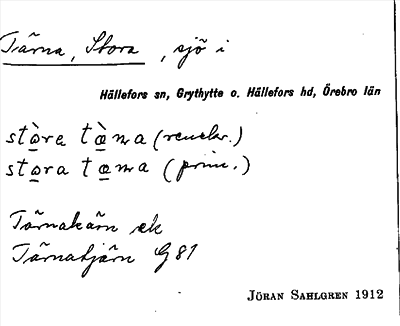 Tärna, Stora, sjö i
Hällefors sn, Grythytte o. Hällefors hd, Örebro län
stòra tæ̀ṇa (
stora tæṇa (
Tärnakärn ek
Tärnatjärn G 81
JÖRAN SAHLGREN 1912